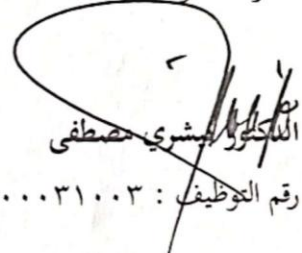 الدكتور بيشري مصطفى
رقم التوظيف : ٠٠٠٠٣١٠٠٣